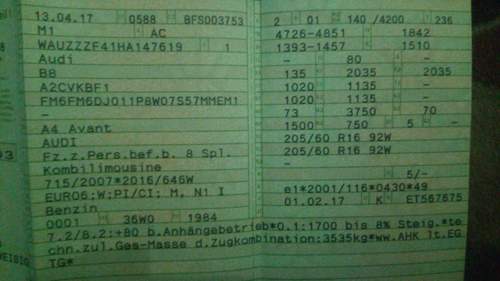 13.04.17 0588 BFS003753
M1 AC
WAUZZZF41HA147619 1
Audi
B8
A2CVKBF1
FM6FM6DJ011P8W07S57MMEM1
-
A4 Avant
AUDI
Fz.z.Pers.bef.b. 8 Spl.
Kombilimousine
715/2007*2016/646W
EURO6;W;PI/CI; M, N1 I
Benzin
0001 36W0 1984
2 01 140 /4200 236
4726-4851 1842
1393-1457 1510
- 80 -
135 2035 2035
1020 1135 -
1020 1135 -
73 3750 70
1500 750 5 -
205/60 R16 92W
205/60 R16 92W
-
5/-
e1*2001/116*0430*49
01.02.17 K ET567675
7.2/8.2:+80 b.Anhängebetrieb*0.1:1700 bis 8% Steig.*te
chn.zul.Ges-Masse d.Zugkombination:3535kg*ww.AHK lt.EG
TG*